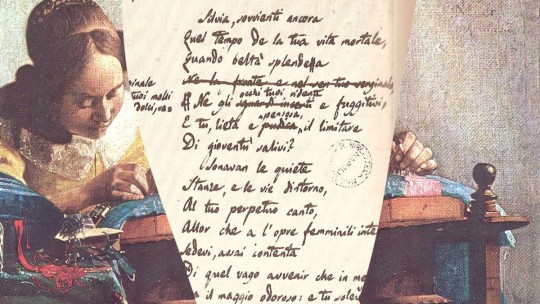 Silvia, sovvienti ancora
Quel tempo de la tua vita mortale,
Quando beltà splendea
Ne la fronte e nel sen tuo verginale,
occhi tuoi ridenti
Ne gli sguardi incerti e fuggitivi,
pensosa,
E tu, lieta e pudica, il limitare
Di gioventù salivi?
Sonavan le quiete
Stanze, e le vie dintorno,
Al tuo perpetuo canto,
Allor che a l'opre femminili inte
Sedevi, assai contenta
Di quel vago avvenir che in me
il maggio odoroso: e tu sole
ginale
tuoi molli
dolci, va